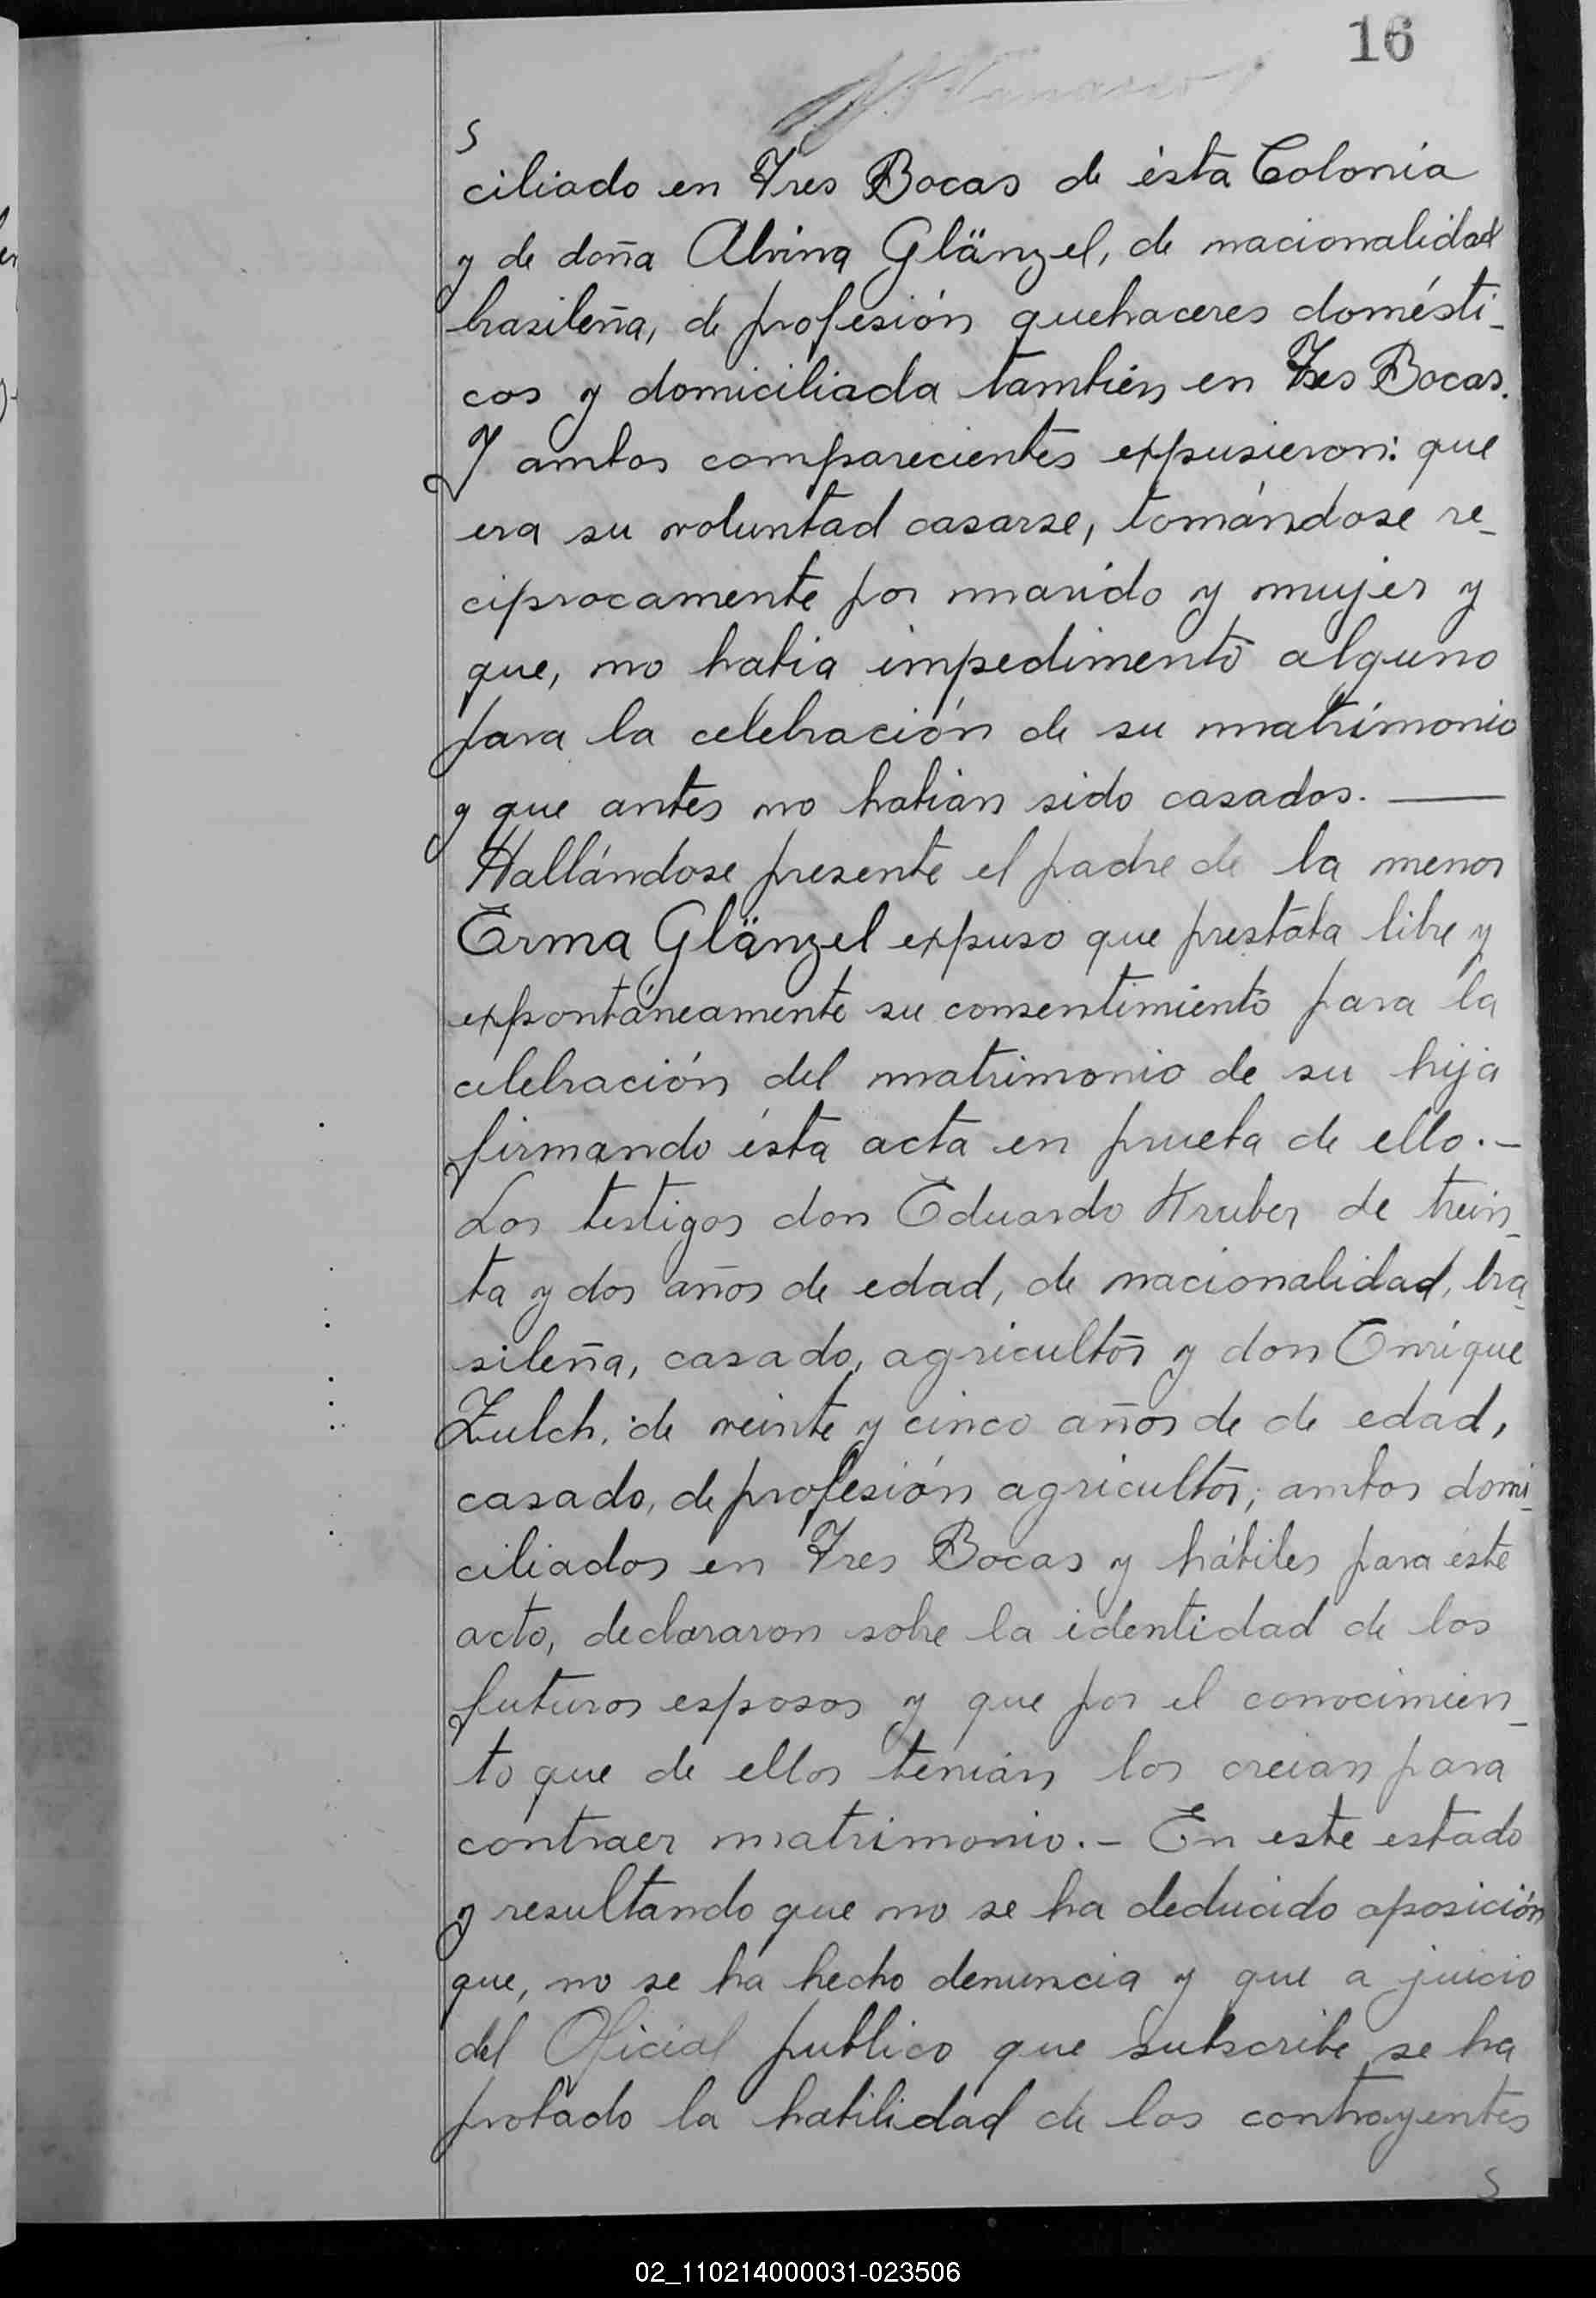 16
S
ciliado en Tres Bocas de ésta Colonia
y de doña Alvina Glänzel, de nacionalidad
brasileña, de profesión quehaceres domésti-
cos y domiciliada también en Tres Bocas.
Y ambos comparecientes expusieron: que
era su voluntad casarse, tomándose re-
ciprocamente por marido y mujer y
que, no habia impedimento alguno
para la celebración de su matrimonio
y que antes no habian sido casados. —
Hallándose presente el padre de la menor
Erma Glänzel expuso que prestaba libre y
expontáneamente su consentimiento para la
celebración del matrimonio de su hija
firmando ésta acta en prueba de ello.-
Los testigos don Eduardo Kruber de trein-
ta y dos años de edad, de nacionalidad, bra-
sileña, casado, agricultor y don Enrique
Zulch, de veinte y cinco años de de edad,
casado, de profesión agricultor; ambos domi-
ciliados en Tres Bocas y hábiles para éste
acto, declararon sobre la identidad de los
futuros esposos y que por el conocimien-
to que de ellos tenian los creian para
contraer matrimonio.- En este estado
y resultando que no se ha deducido oposición
que, no se ha hecho denuncia y que a juicio
del Oficial publico que subscribe se ha
probado la habilidad de los contrayentes
S
02_110214000031-023506